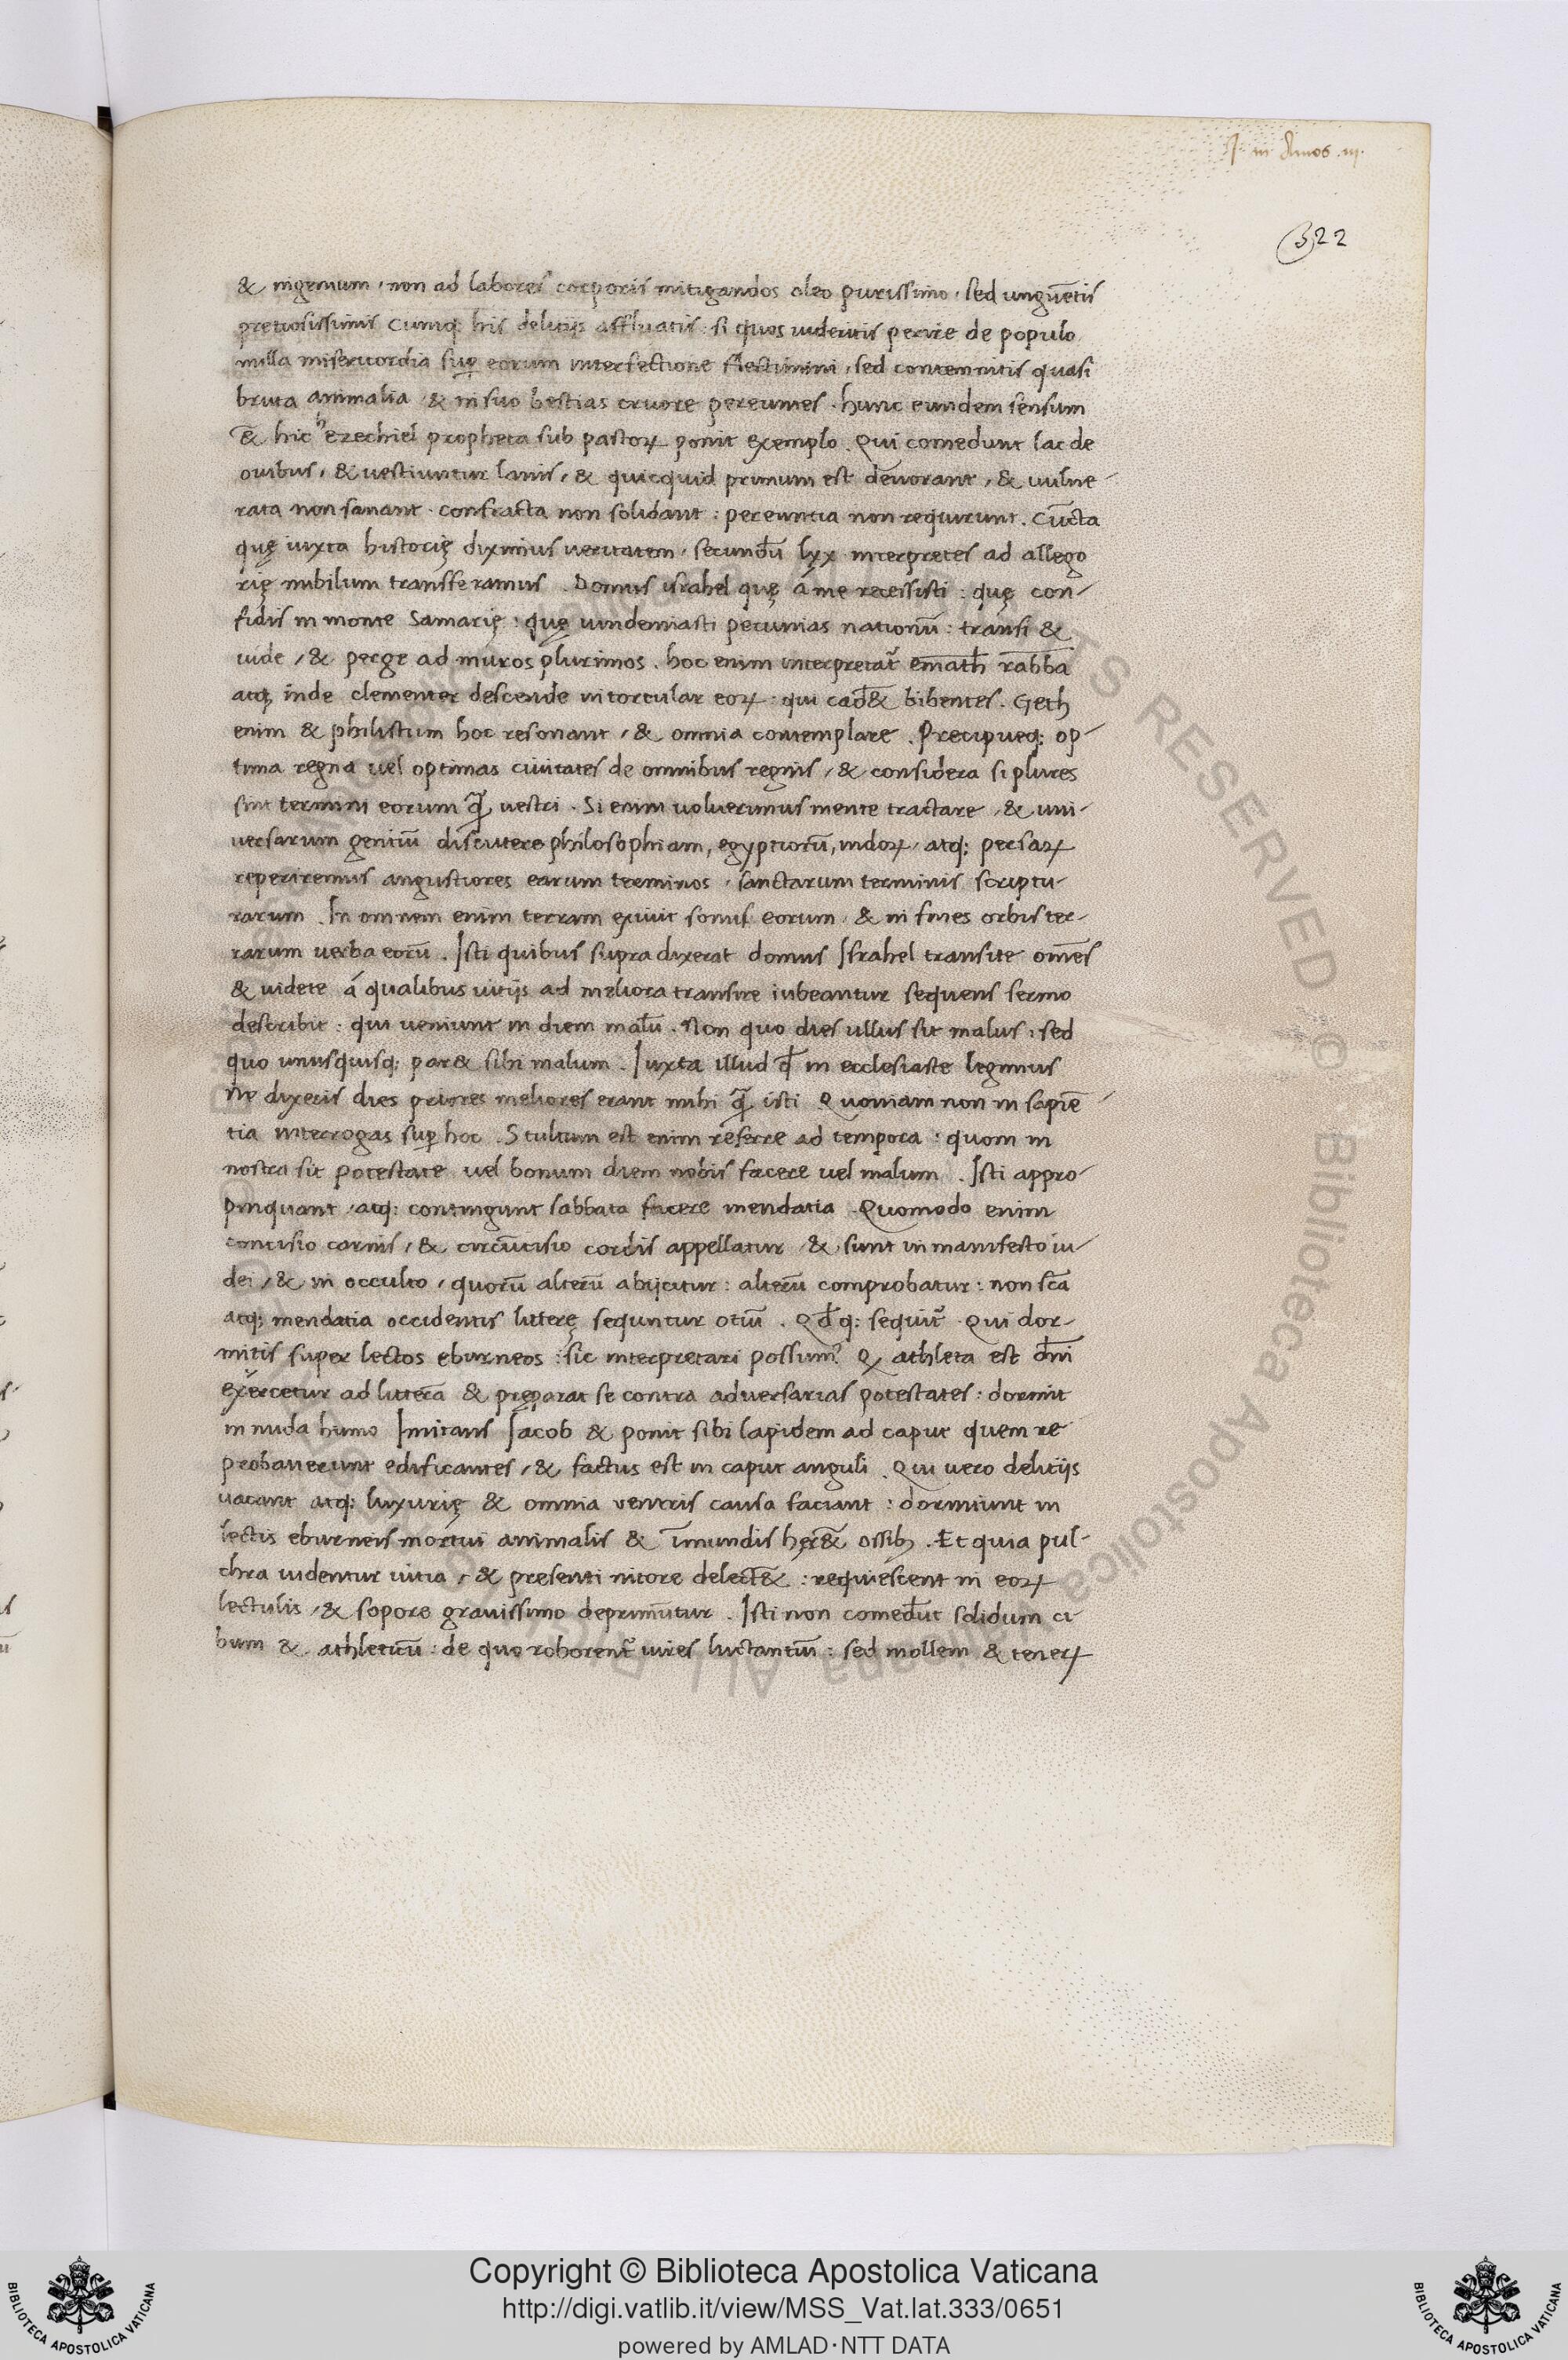 J. in Amos .iii.
322
& ingenium, non ad labores corporis mitigandos oleo purissimo, sed ungu̅etis
pretiosissimis Cumq; his delitijs affluatis: si quos uideritis perire de populo
nulla misericordia sup̱ eorum interfectione flectimini, sed contemnitis quasi
bruta animalia & in suo bestias cruore pereuntes. hunc eundem sensum
& hic Ezechiel propheta sub pastoꝝ ponit exemplo. Qui comedunt lac de
ouibus, & uestiuntur lanis, & quicquid primum est deuorant, & uulne-
rata non sanant. confracta non solidant: pereuntia non requirunt. Cu̅cta
quę iuxta historię diximus ueritatem, secundu̅ lxx interpretes ad allego
rię nubilum transferamus. Domus israhel quę á me recessisti: quę con-
fidis in monte Samarię: quę uindemiasti pecunias nationu̅: transi &
uide, & perge ad muros plurimos. hoc enim interpretat᷑ emath rabba
atq; inde clementer descende in torcular eoꝝ: qui cad& bibentes. Geth
enim & philistium hoc resonant, & omnia contemplare. Precipueq; op-
tima regna uel optimas ciuitates de omnibus regnis, & considera si plures
sint termini eorum q̃ uestri. Si enim uoluerimus mente tractare, & uni-
uersarum gentiu̅ discutere philosophiam, egyptioru̅, indoꝝ, atq; persaꝝ
reperiremus angustiores earum terminos, sanctarum terminis scriptu-
rarum. In omnem enim terram exiuit sonus eorum, & in fines orbis ter-
rarum uerba eoru̅. Isti quibus supra dixerat domus Israhel transite om̅es
& uidete á qualibus uitijs ad meliora transire iubeantur sequens sermo
describit: qui ueniunt in diem malu̅. Non quo dies ullus sit malus, sed
quo unusquisq; par& sibi malum. Iuxta illud qđ in ecclesiaste legimus
Ne dixeris dies priores meliores erant mihi q̃ isti Quoniam non in sapie̅
tia interrogas sup̱ hoc. Stultum est enim referre ad tempora: quom in
nostra sit potestate uel bonum diem nobis facere uel malum. Isti appro-
pinquant, atq; contingunt sabbata facere mendatia. Quomodo enim
concisio carnis, & circu̅cisio cordis appellatur & sunt in manifesto iu-
dei, & in occulto, quoru̅ alteru̅ abijcitur: alteru̅ comprobatur: non sc̅a
atq; mendatia occidentis litterę sequntur otiu̅. Qđq; sequit᷑ Qui dor-
mitis super lectos eburneos: sic interpretari possum᷒ Q athleta est dn̅i
exercetur ad littera̅ & pręparat se contra aduersarias potestates: dormit
in nuda humo Imitans Jacob & ponit sibi lapidem ad caput quem re
probauerunt edificantes, & factus est in caput anguli. Qui uero delitijs
uacant atq; luxurię & omnia uentris causa faciant: dormiunt in
lectis eburneis mortui animalis & i̅mundis her& ossib;. Et quia pul-
chra uidentur uitia, & presenti nitore delect&: requiescent in eoꝝ
lectulis, & sopore grauissimo deprimu̅tur. Isti non comedu̅t solidum ci-
bum & athleticu̅: de quo roborent᷑ uires luctantiu̅: sed mollem & teneꝝ
ALL RIGHTS RESERVED © Biblioteca Apostolica Vaticana
Copyright © Biblioteca Apostolica Vaticana
http://digi.vatlib.it/view/MSS_Vat.lat.333/0651
powered by AMLAD·NTT DATA
BIBLIOTECA APOSTOLICA VATICANA
BIBLIOTECA APOSTOLICA VATICANA